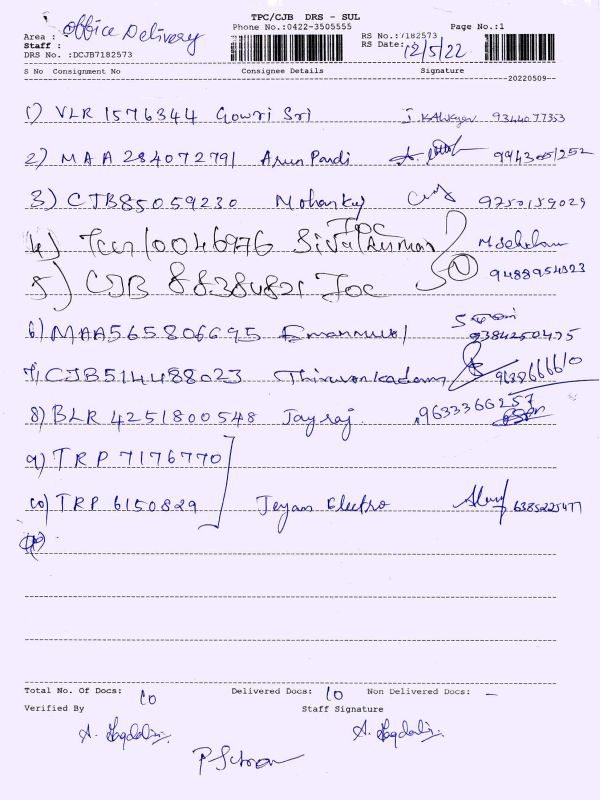 TPC/CJB DRS - SUL
Area : Office Delivery Phone No.:0422-3505555 Page No.:1
Staff : RS No.:7182573
DRS No. :DCJB7182573 RS Date: 12/5/22
S No Consignment No Consignee Details Signature
20220509
1) VLR 1576344 Gowri Sri 9344077353
2) MAA 284072791 Arun Pandi
3) CJB85059230 9750159029
4) Siva Kumar TOC
9488954323
5) CJB TOC
6) MAA565806695 Emannuel 9384250475
7) CJB514488023
8) BLR 4251800548 Jayraj 9633366257
9) TRP 7176770
10) TRP 6150829 Jeyam Electro 6385225477
Total No. Of Docs: 10 Delivered Docs: 10 Non Delivered Docs: -
Verified By Staff Signature